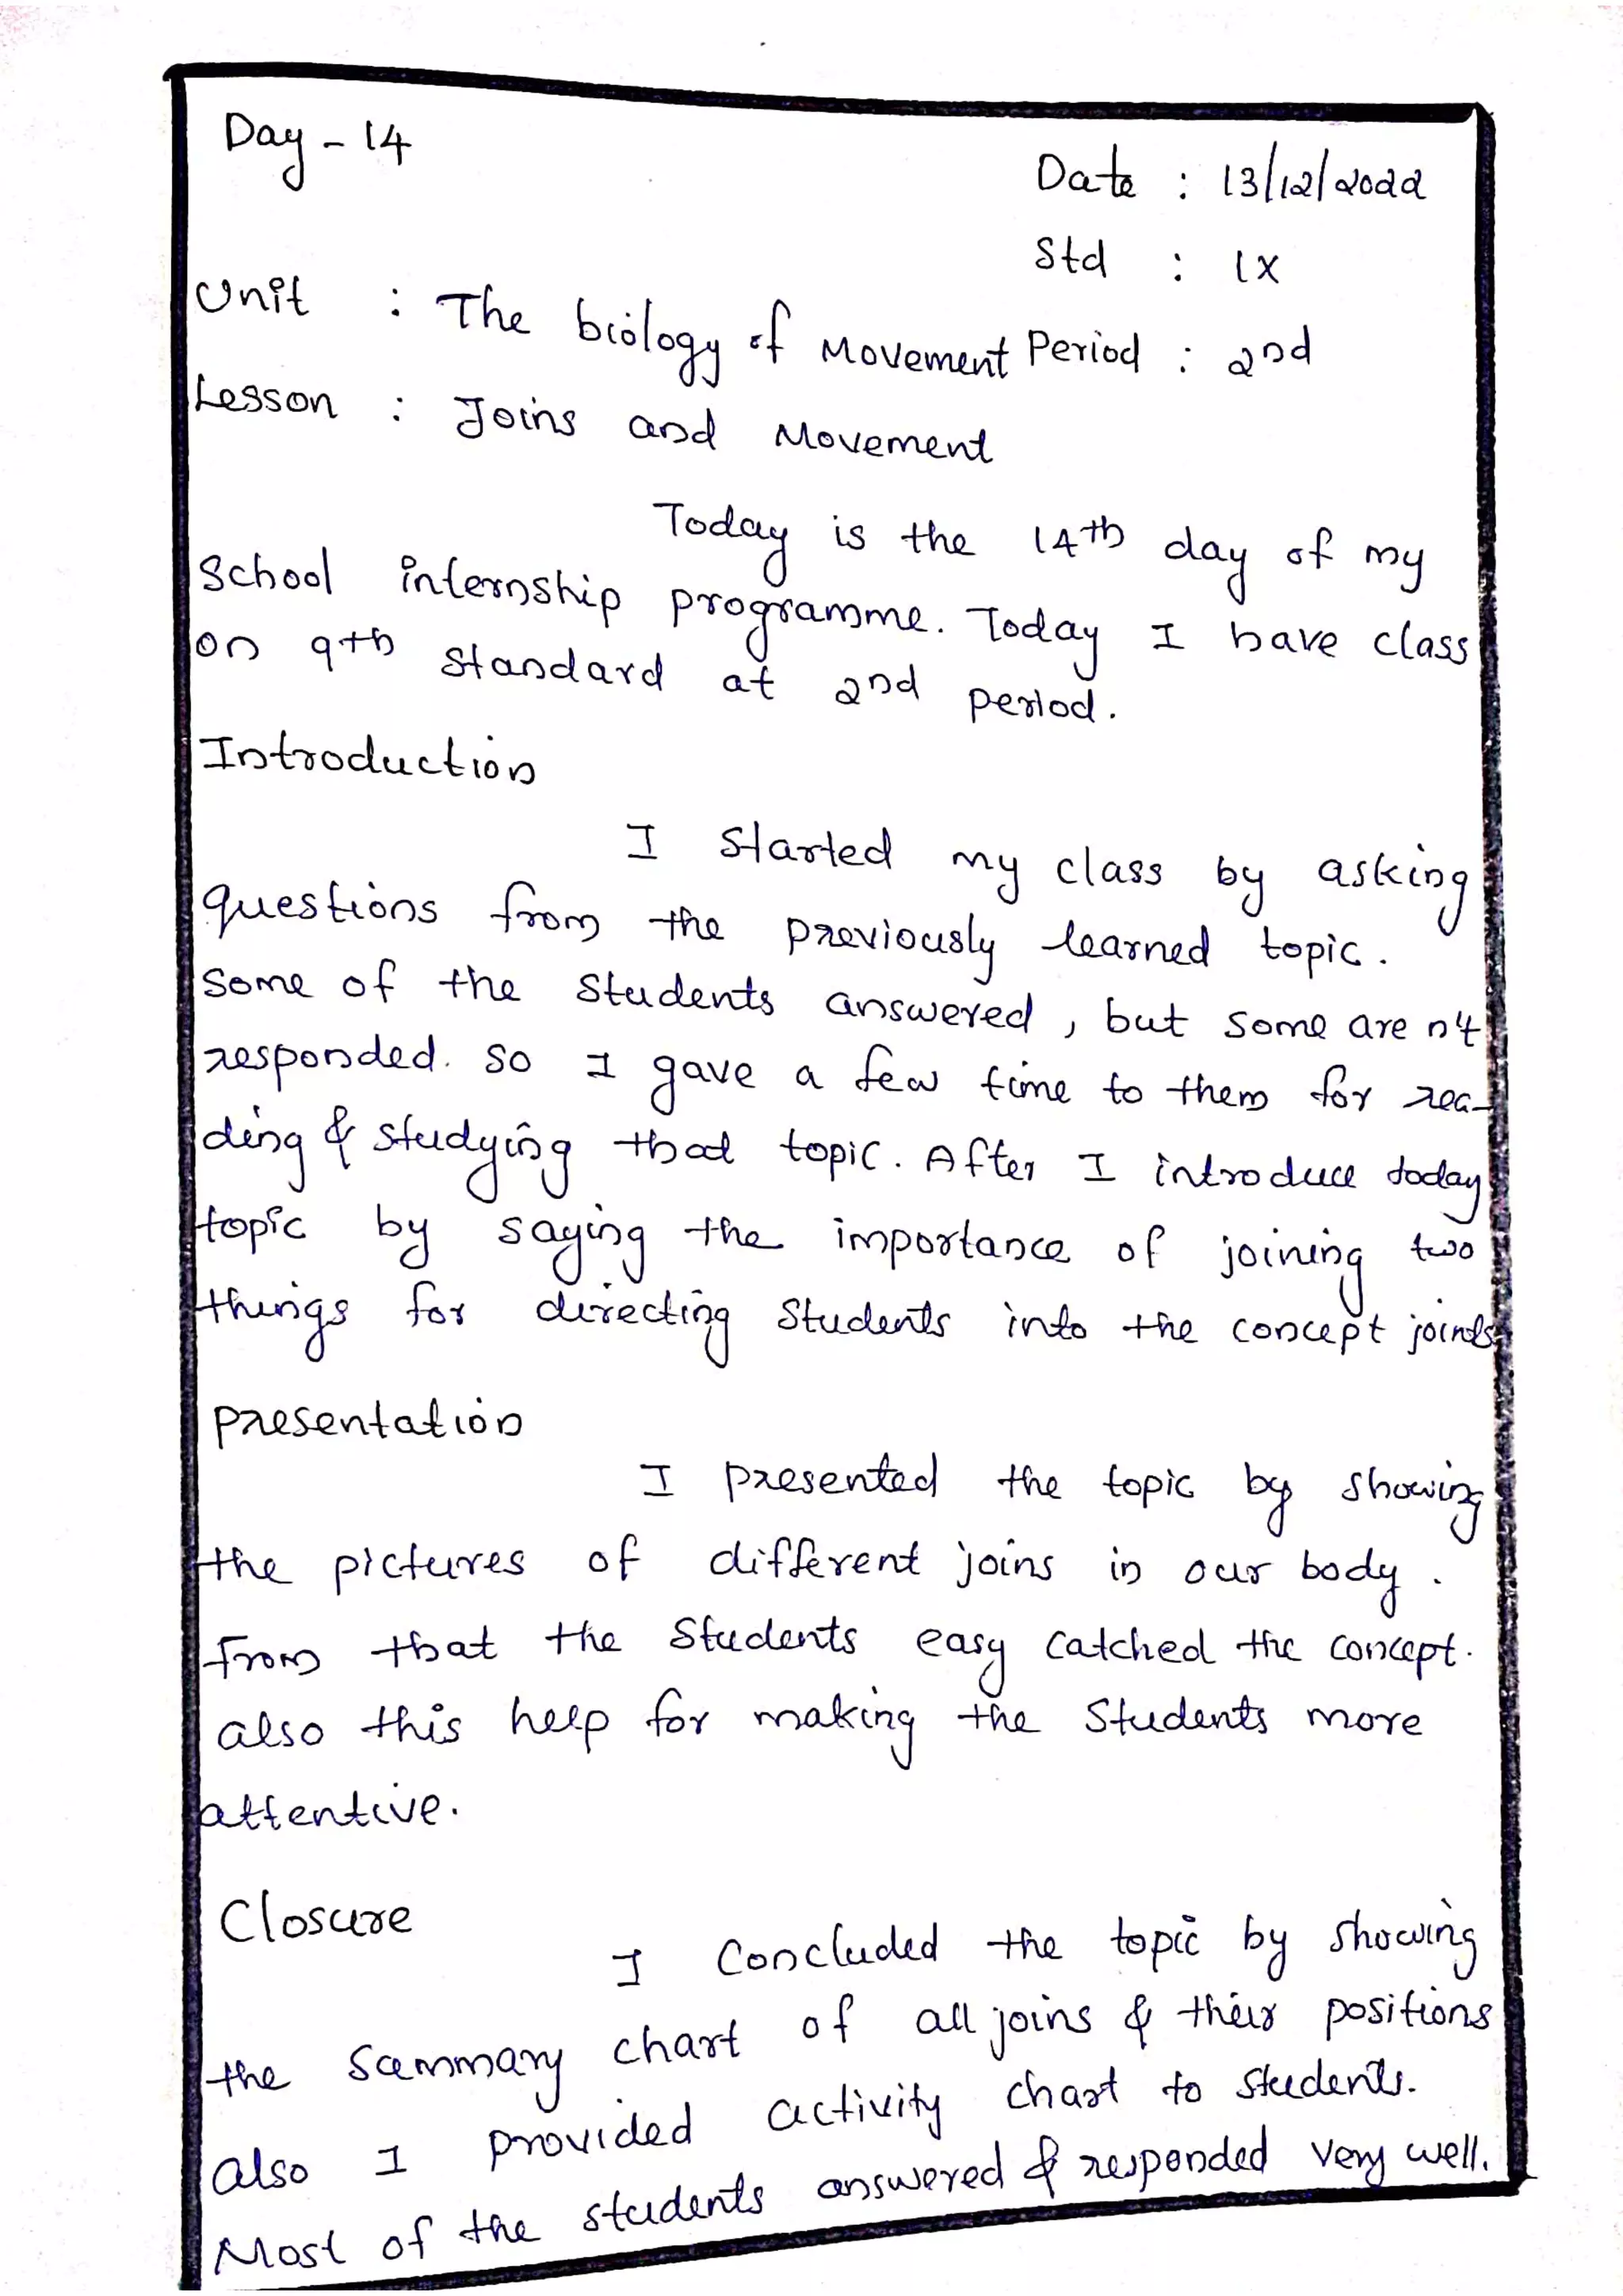 Day - 14
Date : 13/12/2022
Std : IX
Unit : The biology of Movement Period : 2nd
Lesson : Joins and Movement
Today is the 14th day of my
School internship programme. Today I have class
on 9th Standard at 2nd period.
Introduction
I Started my class by asking
questions from the previously learned topic.
Some of the Students answered, but some are n't
responded. So I gave a few time to them for rea-
ding & studying that topic. After I introduce today
topic by saying the importance of joining two
things for directing Students into the concept joints
Presentation
I presented the topic by showing
the pictures of different joins in our body.
From that the Students easy catched the concept.
also this help for making the Students more
attentive.
Closure
I Concluded the topic by showing
the Summary chart of all joins & their positions
also I provided activity chart to students.
Most of the students answered & responded very well.